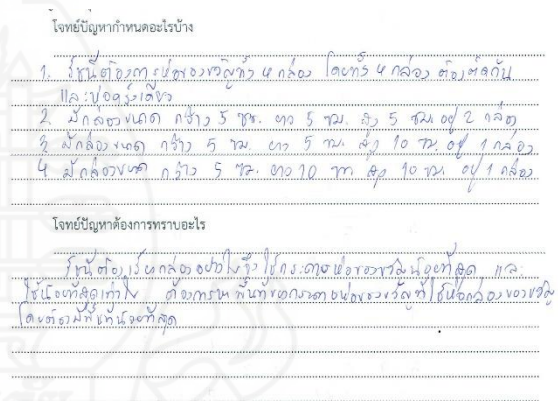 โจทย์ปัญหากำหนดอะไรบ้าง
1. รัชนีต้องการห่อของขวัญทั้ง 4 กล่อง โดยทั้ง 4 กล่อง ต้องติดกัน
และห่อครั้งเดียว
2. มีกล่องขนาด กว้าง 5 ซม. ยาว 5 ซม. สูง 5 ซม. อยู่ 2 กล่อง
3. มีกล่องขนาด กว้าง 5 ซม. ยาว 5 ซม. สูง 10 ซม. อยู่ 1 กล่อง
4. มีกล่องขนาด กว้าง 5 ซม. ยาว 10 ซม. สูง 10 ซม. อยู่ 1 กล่อง
โจทย์ปัญหาต้องการทราบอะไร
รัชนีต้องเรียงกล่องอย่างไรจึงใช้กระดาษห่อของขวัญน้อยที่สุด และ
ใช้น้อยที่สุดเท่าใด ต้องการหาพื้นที่ของกระดาษห่อของขวัญที่ใช้ห่อกล่องของขวัญ
โดยต้องมีพื้นที่น้อยที่สุด